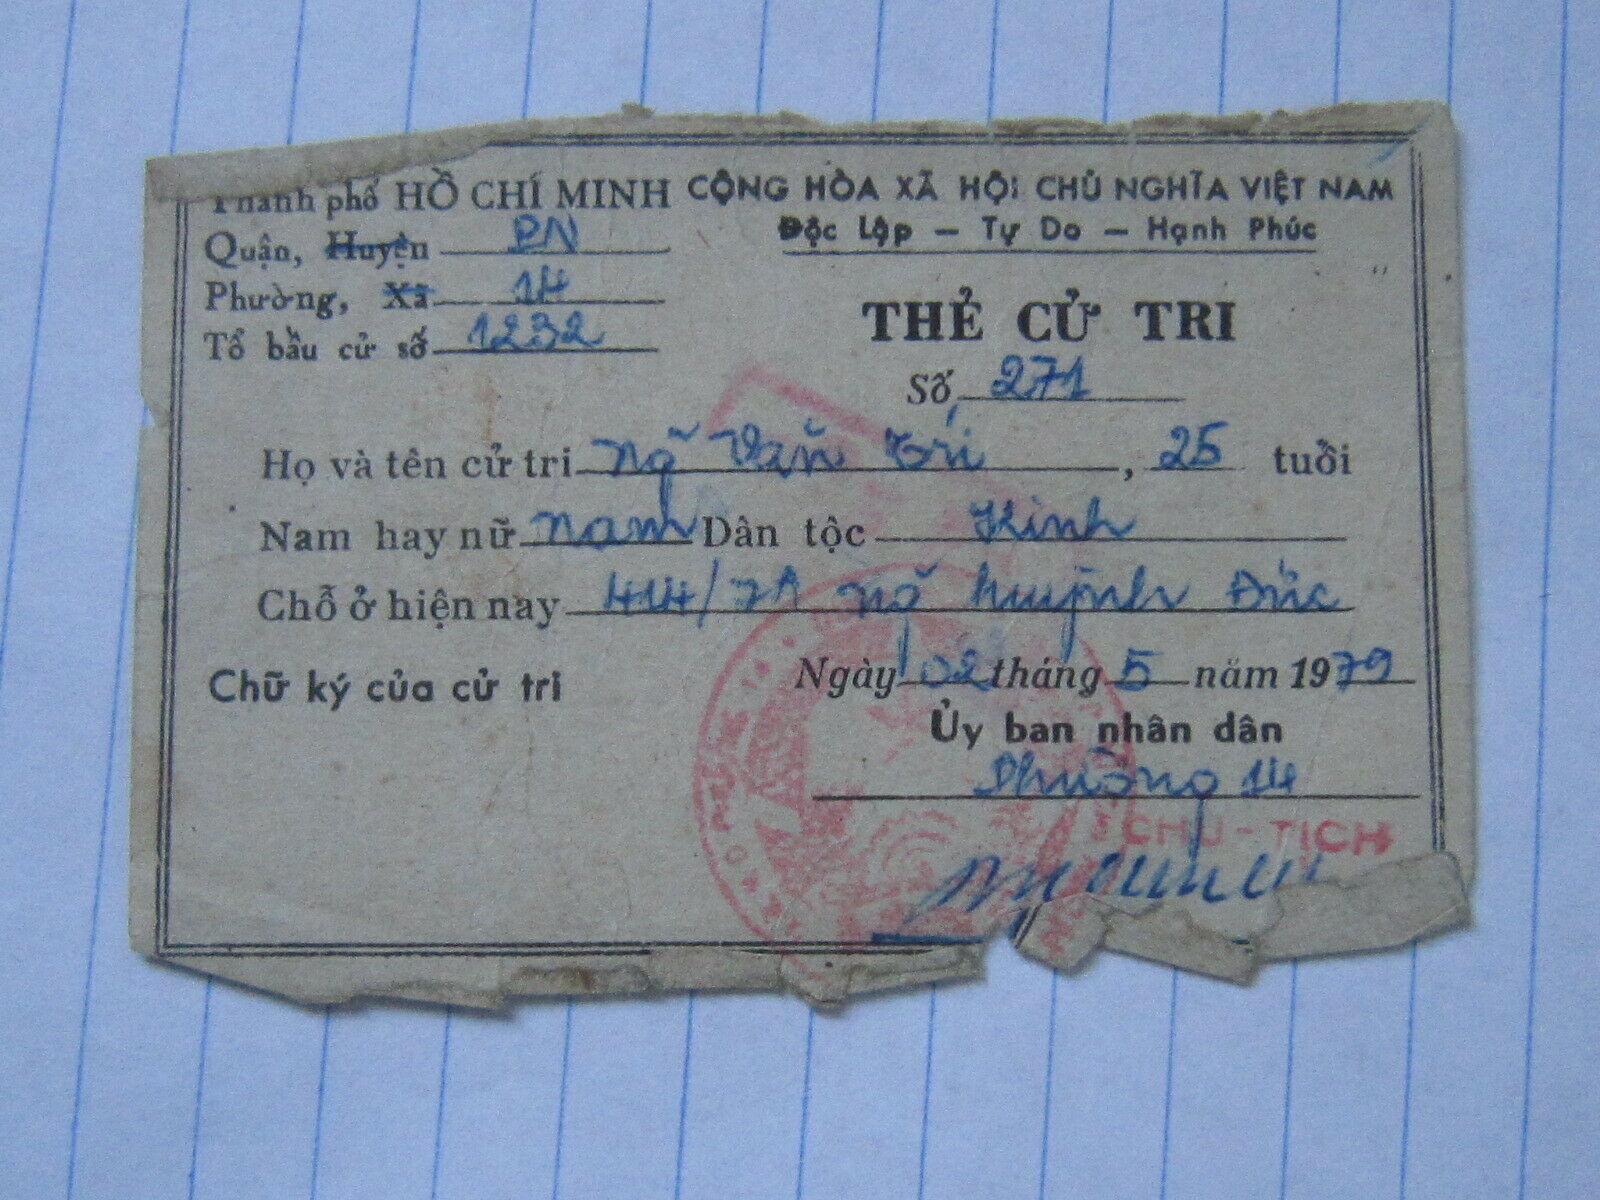 Thành phố HỒ CHÍ MINH
Quận, Huyện PN
Phường, Xã 14
Tổ bầu cử số 1232
CỘNG HÒA XÃ HỘI CHỦ NGHĨA VIỆT NAM
Độc Lập — Tự Do — Hạnh Phúc
THẺ CỬ TRI
Số 271
Họ và tên cử tri Ngô Văn, 25 tuổi
Nam hay nữ nam Dân tộc Kinh
Chỗ ở hiện nay 414/7A Huỳnh Đức
Chữ ký của cử tri
Ngày 02 tháng 5 năm 1979
Ủy ban nhân dân
Phường 14
CHỦ - TỊCH